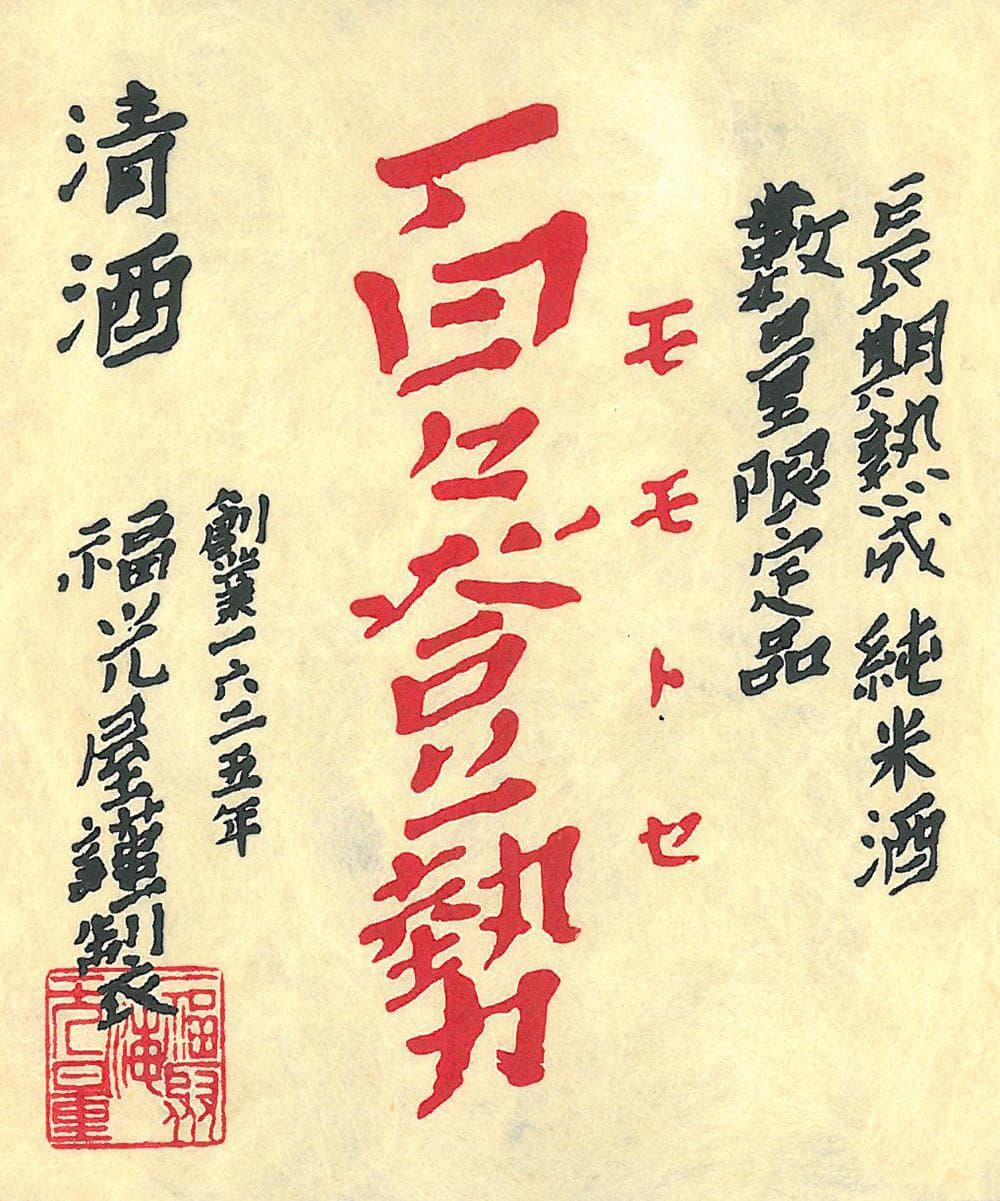 長期熟成 純米酒
數量限定品
モモトセ
百々登勢
清酒
創業一六二五年
福光屋謹製